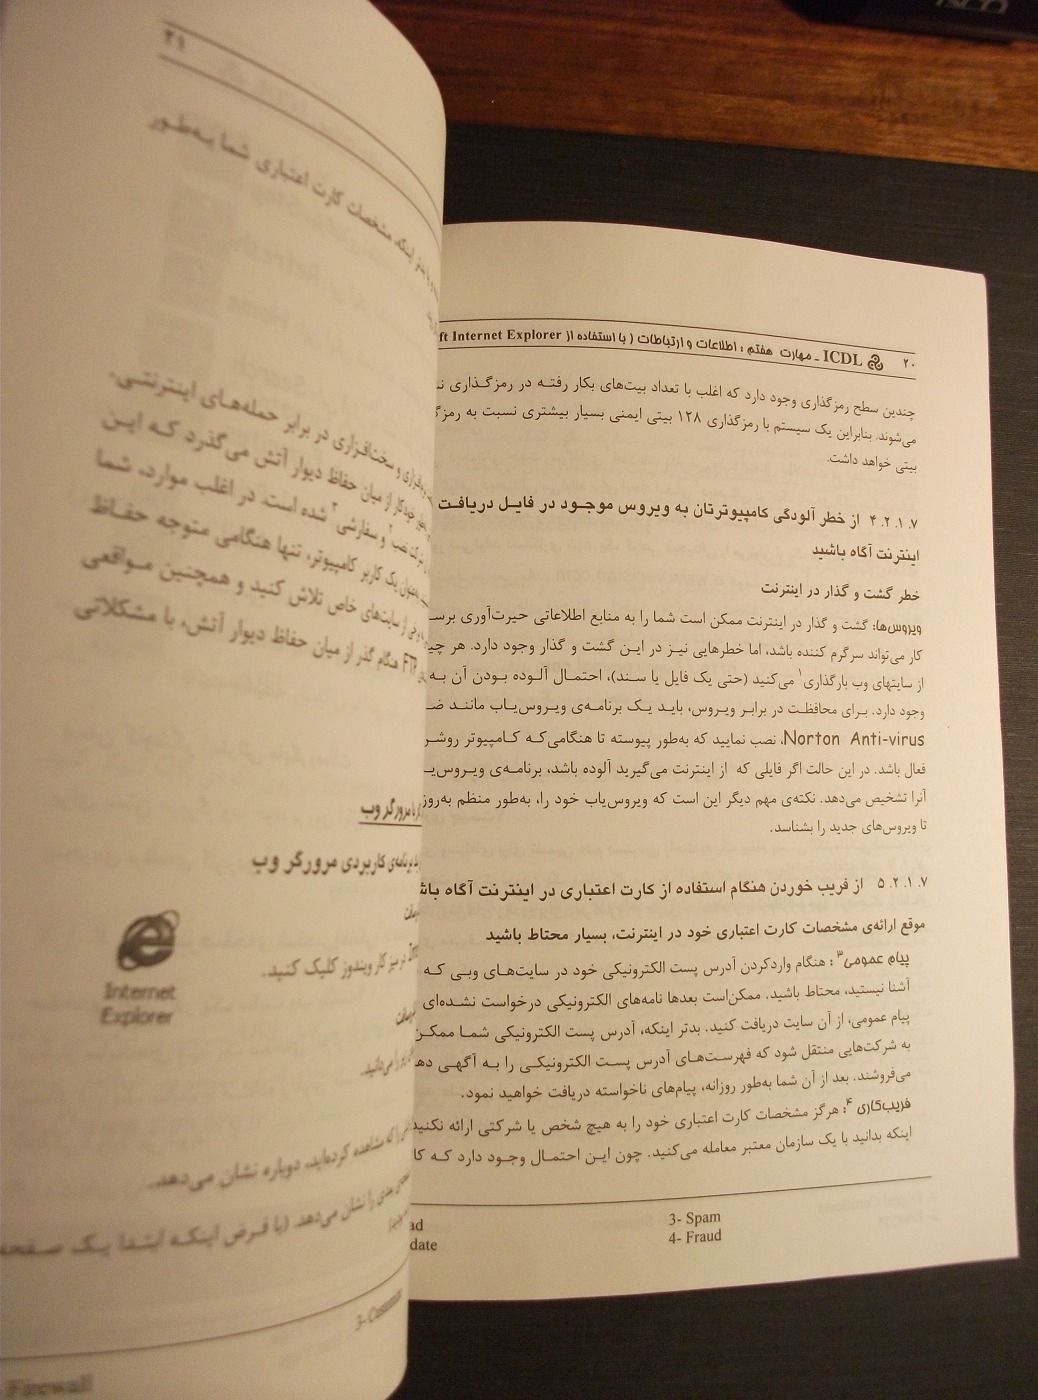 ۲۰ ICDL ـ مهارت هفتم : اطلاعات و ارتباطات ( با استفاده از ft Internet Explorer
چندین سطح رمزگذاری وجود دارد که اغلب با تعداد بیت‌های بکار رفته در رمزگذاری
می‌شوند. بنابراین یک سیستم با رمزگذاری ۱۲۸ بیتی ایمنی بسیار بیشتری نسبت به
بیتی خواهد داشت.
۴.۲.۱.۷ از خطر آلودگی کامپیوترتان به ویروس موجود در فایل دریافت
اینترنت آگاه باشید
خطر گشت و گذار در اینترنت
ویروس‌ها: گشت و گذار در اینترنت ممکن است شما را به منابع اطلاعاتی حیرت‌آوری
کار می‌تواند سرگرم کننده باشد، اما خطرهایی نیز در این گشت و گذار وجود دارد. هر
از سایتهای وب بارگذاری۱ می‌کنید (حتی یک فایل یا سند)، احتمال آلوده بودن آن به
وجود دارد. برای محافظت در برابر ویروس، باید یک برنامه‌ی ویروس‌یاب مانند
Norton Anti-virus، نصب نمایید که به‌طور پیوسته تا هنگامی‌که کامپیوتر
فعال باشد. در این حالت اگر فایلی که از اینترنت می‌گیرید آلوده باشد، برنامه‌ی
آنرا تشخیص می‌دهد. نکته‌ی مهم دیگر این است که ویروس‌یاب خود را، به‌طور منظم
تا ویروس‌های جدید را بشناسد.
۵.۲.۱.۷ از فریب خوردن هنگام استفاده از کارت اعتباری در اینترنت آگاه
موقع ارائه‌ی مشخصات کارت اعتباری خود در اینترنت، بسیار محتاط باشید
پیام عمومی۳: هنگام واردکردن آدرس پست الکترونیکی خود در سایت‌های وبی که
آشنا نیستید، محتاط باشید. ممکن‌است بعدها نامه‌های الکترونیکی درخواست نشده‌ای
پیام عمومی، از آن سایت دریافت کنید. بدتر اینکه، آدرس پست الکترونیکی شما
به شرکت‌هایی منتقل شود که فهرست‌های آدرس پست الکترونیکی را به آگهی
می‌فروشند. بعد از آن شما به‌طور روزانه، پیام‌های ناخواسته دریافت خواهید نمود.
فریب‌کاری۴: هرگز مشخصات کارت اعتباری خود را به هیچ شخص یا شرکتی ارائه
اینکه بدانید با یک سازمان معتبر معامله می‌کنید. چون این احتمال وجود دارد که
ad 3- Spam
date 4- Fraud
۲۱
اینکه مشخصات کارت اعتباری شما به‌طور
و سخت‌افزاری در برابر حمله‌های اینترنتی.
خودکار از میان حفاظ دیوار آتش می‌گذرد که این
نصب۲ و سفارشی۳ شده است. در اغلب موارد، شما
یک کاربر کامپیوتر، تنها هنگامی متوجه حفاظ
از سایت‌های خاص تلاش کنید و همچنین مواقعی
FTP هنگام گذر از میان حفاظ دیوار آتش، با مشکلاتی
مرورگر وب
برنامه‌ی کاربردی مرورگر وب
میز کار ویندوز کلیک کنید.
Internet
Explorer
را می‌دانید.
را که مشاهده کرده‌اید، دوباره نشان می‌دهد.
بعدی را نشان می‌دهد. (با فرض اینکه ابتدا یک
3- Customi
Firewall